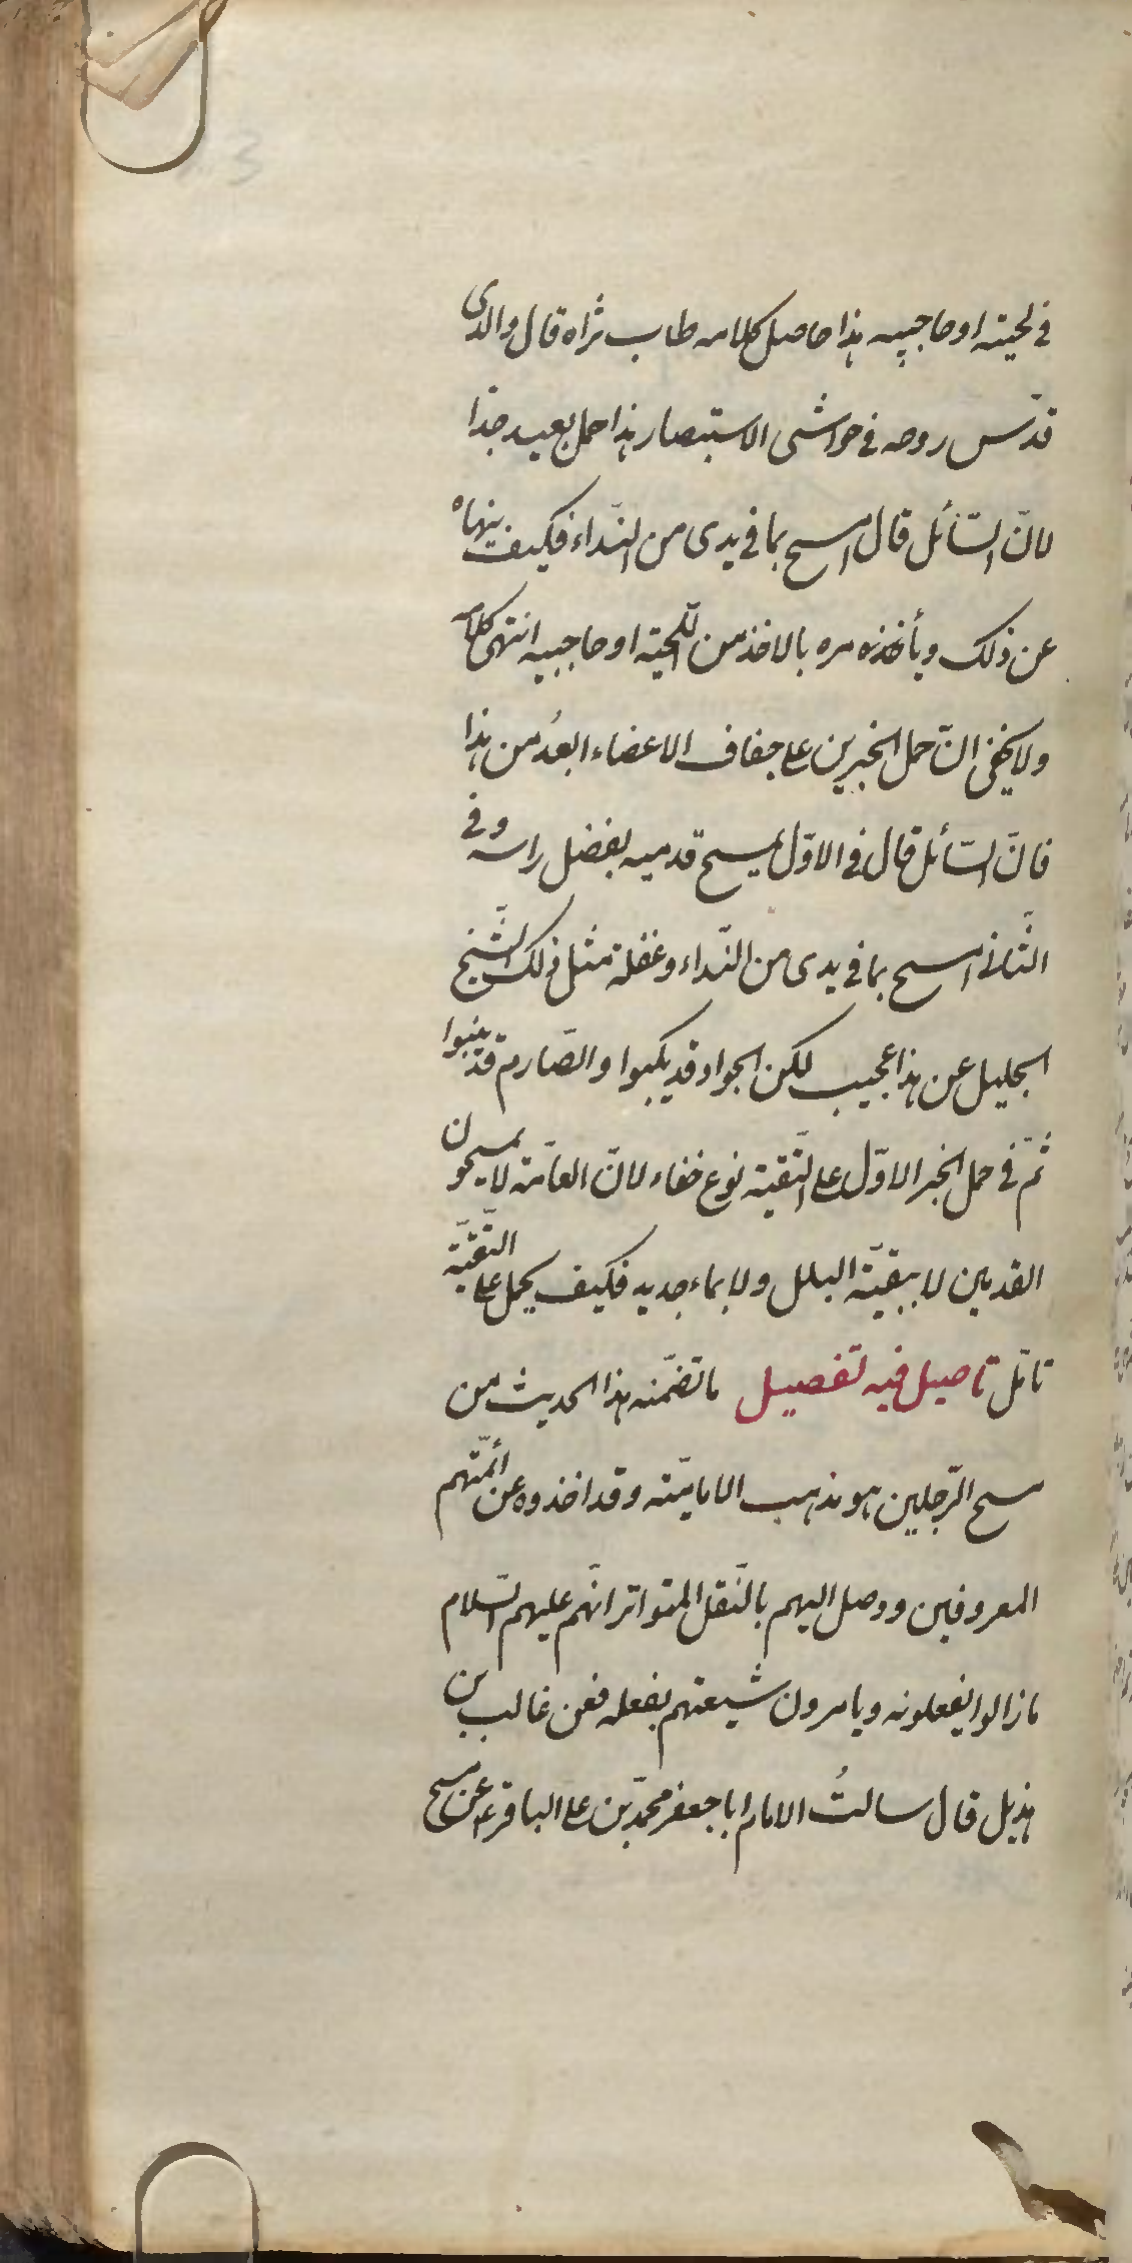 في لحيته او حاجبيه هذا حاصل كلامه طاب ثراه قال والدى
قدّس روحه في حواشى الاستبصار هذا حمل بعيد جدّا
لانّ السّائل قال امسح بما في يدى من النّداء فكيف ينهاه
عن ذلك ويأ مره بالاخذ من اللّحية او حاجبيه انتهى كلامه
ولا يخفى انّ حمل الخبرين على جفاف الاعضاء ابعدُ من هذا
فانّ السّائل قال في الاوّل يمسح قدميه بفضل راسه وفي
الثّانى امسح بما في يدى من النّداء وغفلة مثل ذلك الشّيخ
الجليل عن هذا عجيب لكن الجواد قد يكبوا والصّارم قد ينبوا
ثمّ في حمل الخبر الاوّل على التّقية نوع خفاء لانّ العامّة لا يمسحون
القدمين لا ببقيّة البلل ولا بماء جديد فكيف يحمل على التّقيّة
تامّل تاصيل فيه تفصيل ما تضمّنه هذا الحديث من
مسح الرّجلين هو مذهب الاماميّة وقد اخذوه عن ائمّتهم
المعروفين ووصل اليهم بالنّقل المتواتر انّهم عليهم السّلام
مازالوا يفعلونه ويامرون شيعتهم بفعله فعن غالب بن
هذيل قال سالتُ الامام ابا جعفر محمّد بن على الباقر ع عن مسح